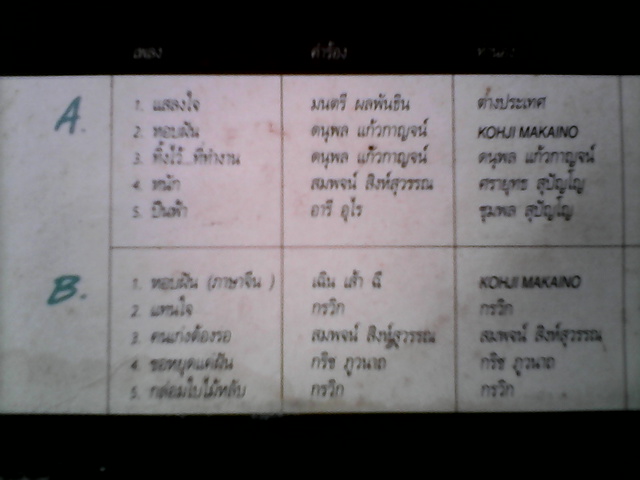 เพลง คำร้อง
A.
1. แสลงใจ มนตรี ผลพันธิน ต่างประเทศ
2. หอบฝัน ดนุพล แก้วกาญจน์ KOHJI MAKAINO
3. ทิ้งไว้...ที่ทำงาน ดนุพล แก้วกาญจน์ ดนุพล แก้วกาญจน์
4. หนัก สมพจน์ สิงห์สุวรรณ ศรายุทธ สุปัญโญ
5. ปีนฟ้า อารี อุไร ชุมพล สุปัญโญ
B.
1. หอบฝัน (ภาษาจีน ) เฉิน เส้า ฉี KOHJI MAKAINO
2. แทนใจ กรวิก กรวิก
3. คนเก่งต้องรอ สมพจน์ สิงห์สุวรรณ สมพจน์ สิงห์สุวรรณ
4. ขอหยุดแค่ฝัน กริช ภูวนาถ กริช ภูวนาถ
5. กล่อมใบไม้หลับ กรวิก กรวิก